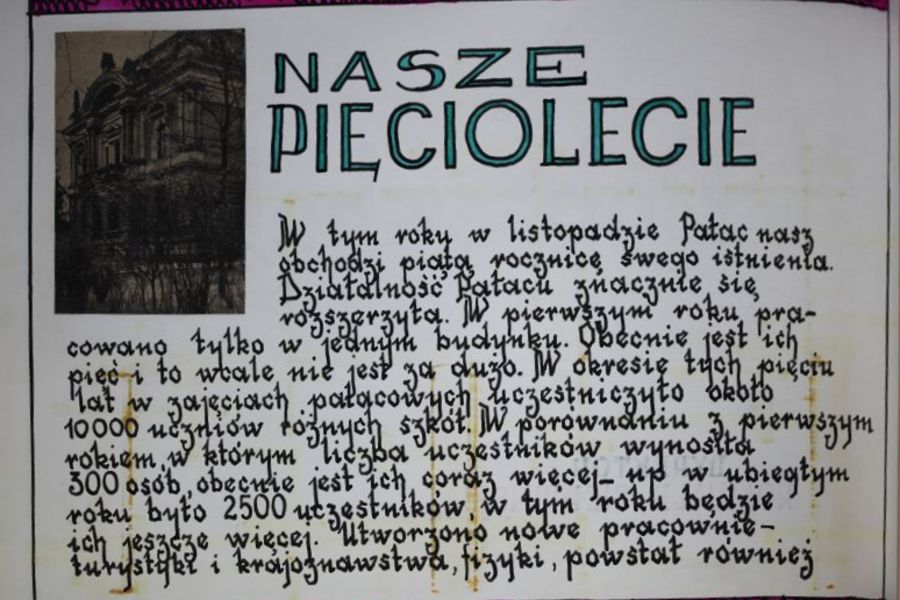 NASZE
PIĘCIOLECIE
W tym roku w listopadzie Pałac nasz
obchodzi piątą rocznicę swego istnienia.
Działalność Pałacu znacznie się
rozszerzyła. W pierwszym roku pra-
cowano tylko w jednym budynku. Obecnie jest ich
pięć i to wcale nie jest za dużo. W okresie tych pięciu
lat w zajęciach pałacowych uczestniczyło około
10000 uczniów różnych szkół. W porównaniu z pierwszym
rokiem, w którym liczba uczestników wynosiła
300 osób, obecnie jest ich coraz więcej – np w ubiegłym
roku było 2500 uczestników, w tym roku będzie
ich jeszcze więcej. Utworzono nowe pracownie –
turystyki i krajoznawstwa, fizyki, powstał również